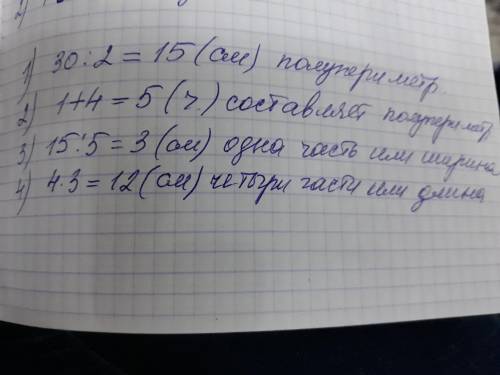 1) 30:2 = 15 (см) полупериметр
2) 1+4 = 5 (ч) составляет полупериметр
3) 15:5 = 3 (см) одна часть или ширина
4) 4·3 = 12 (см) четыри части или длина